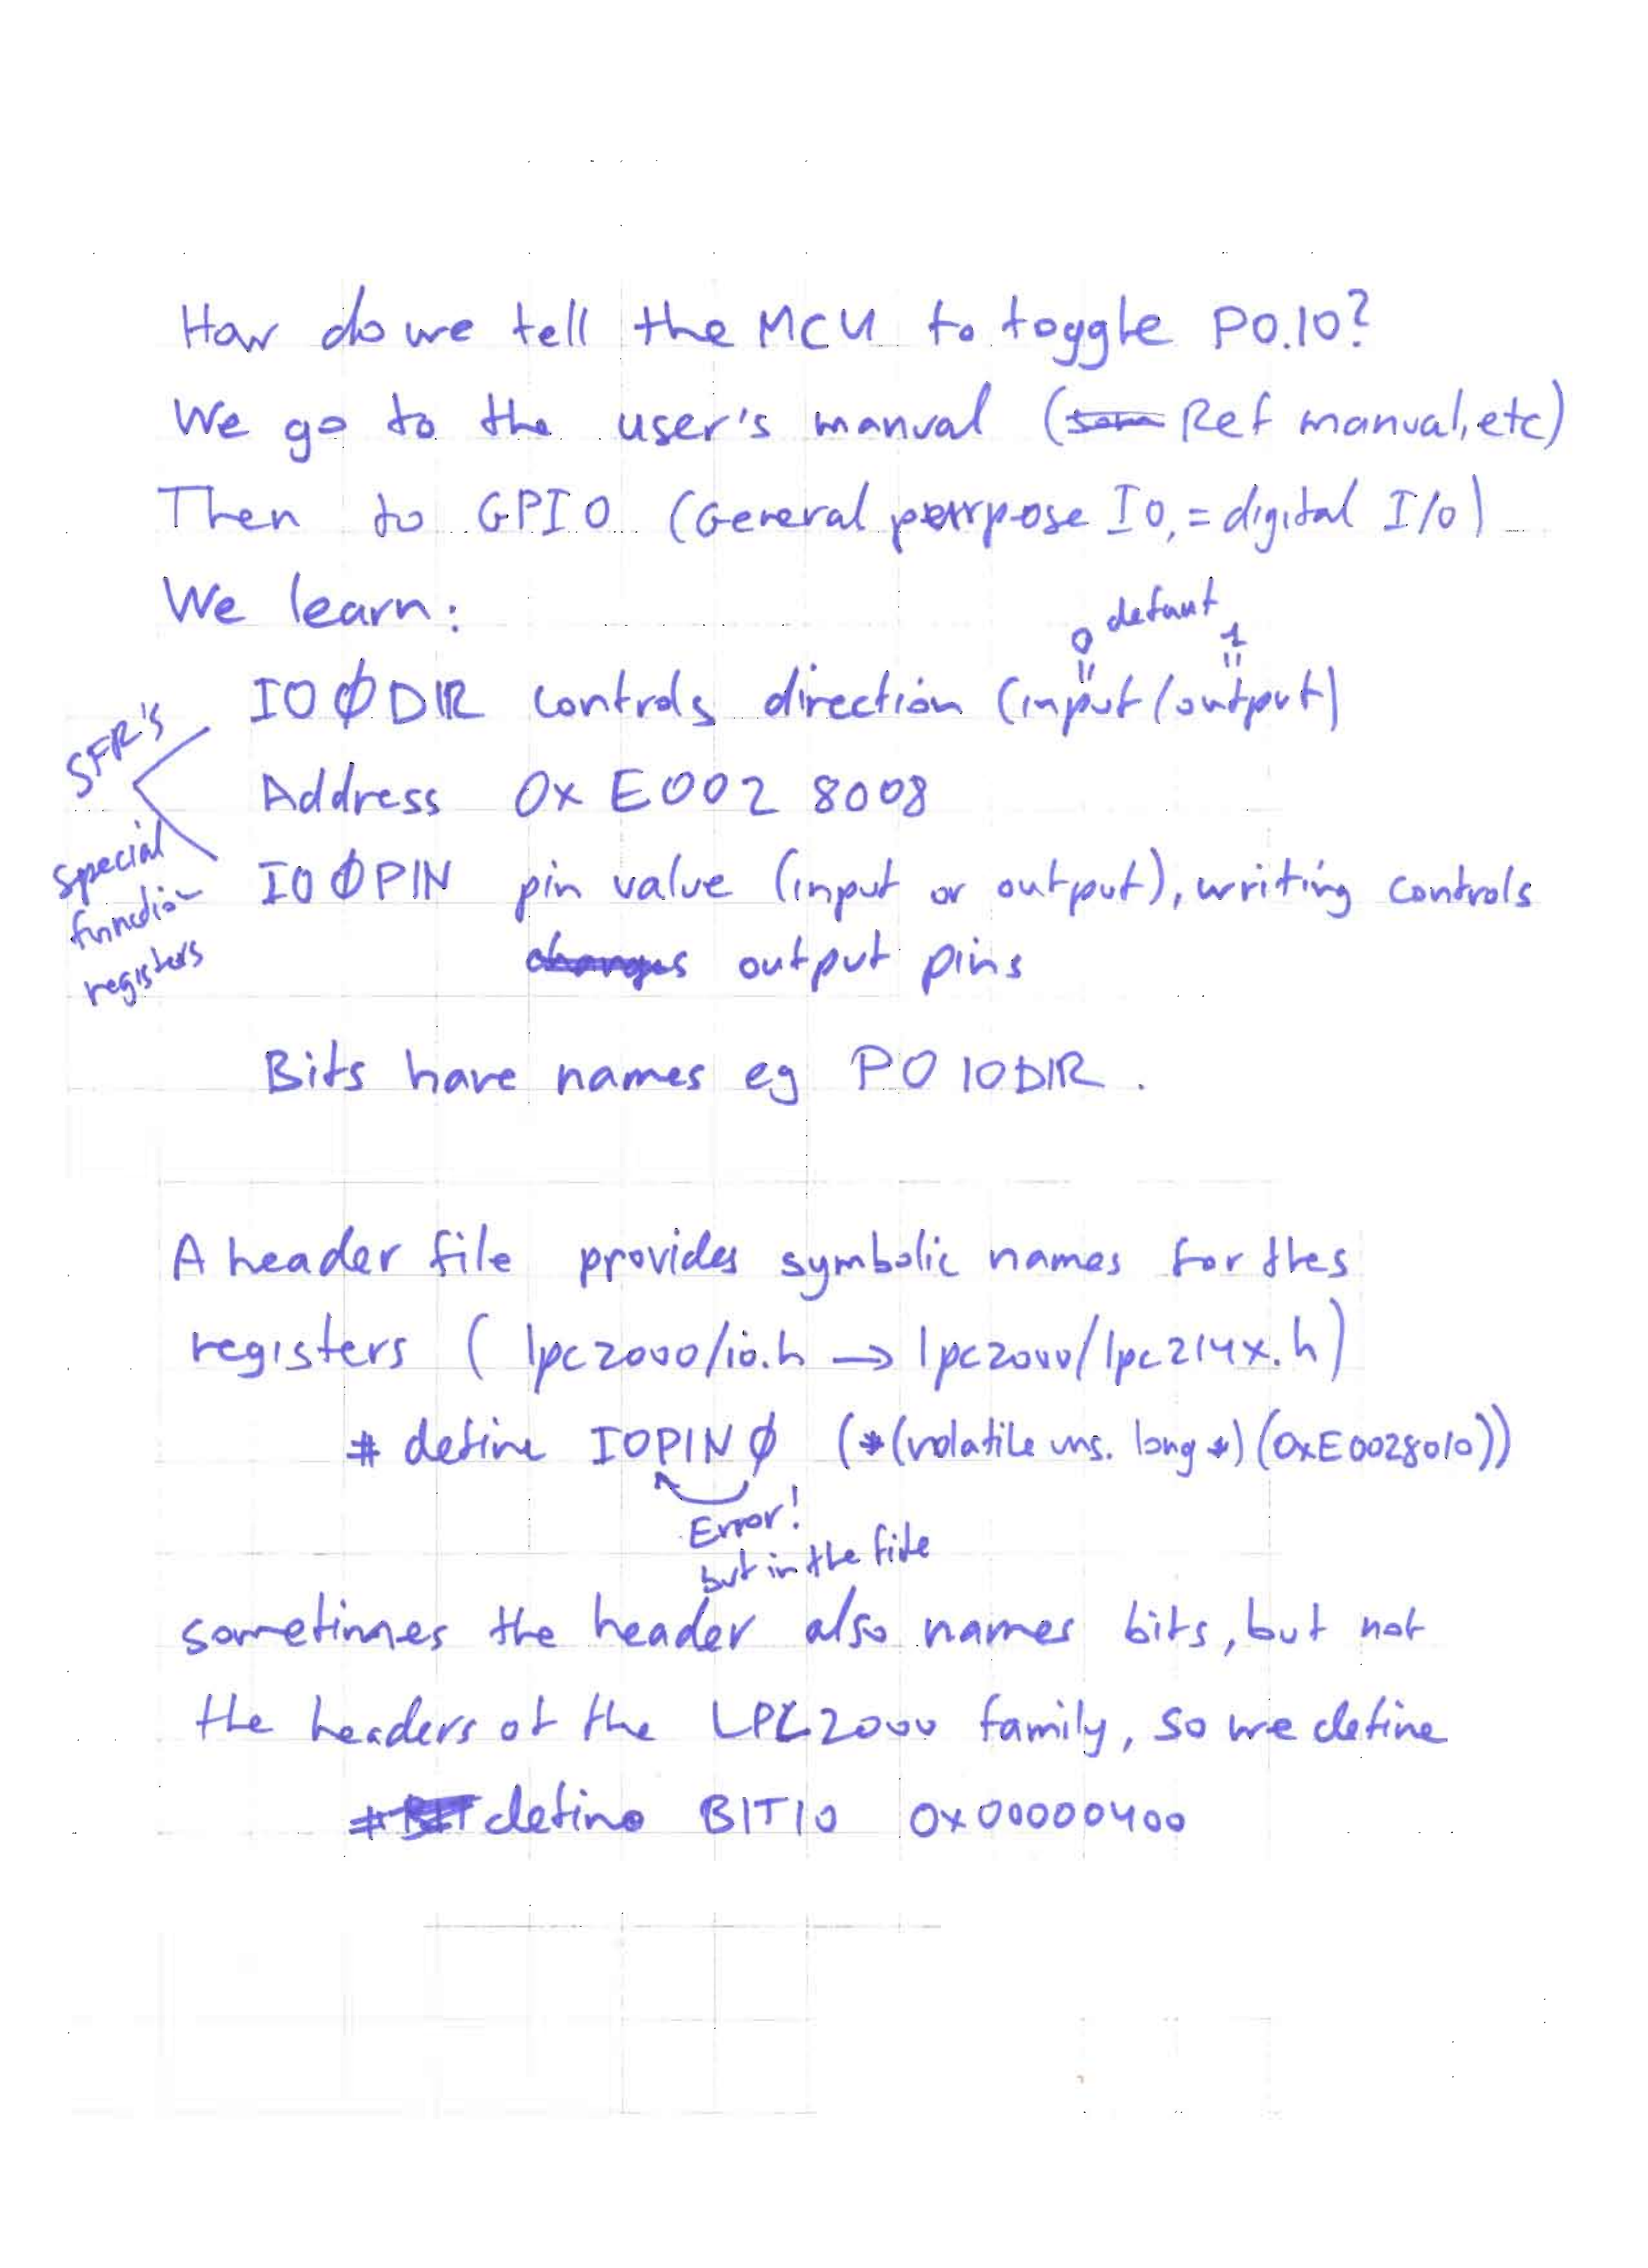 How do we tell the MCU to toggle P0.10?
We go to the user's manual (Ref manual, etc)
Then to GPIO (General purpose IO, = digital I/O)
We learn:
0 defaut 1
" "
IOØDIR controls direction (input/output)
SFR's
Address 0x E002 8008
special
function
registers
IOØPIN pin value (input or output), writing controls
changes output pins
Bits have names eg P0 10DIR.
A header file provides symbolic names for thes
registers ( lpc2000/io.h → lpc2000/lpc214x.h)
# define IOPINØ (*(volatile uns. long *)(0xE0028010))
Error!
but in the file
sometimes the header also names bits, but not
the headers of the LPC2000 family, so we define
# define BIT10 0x00000400